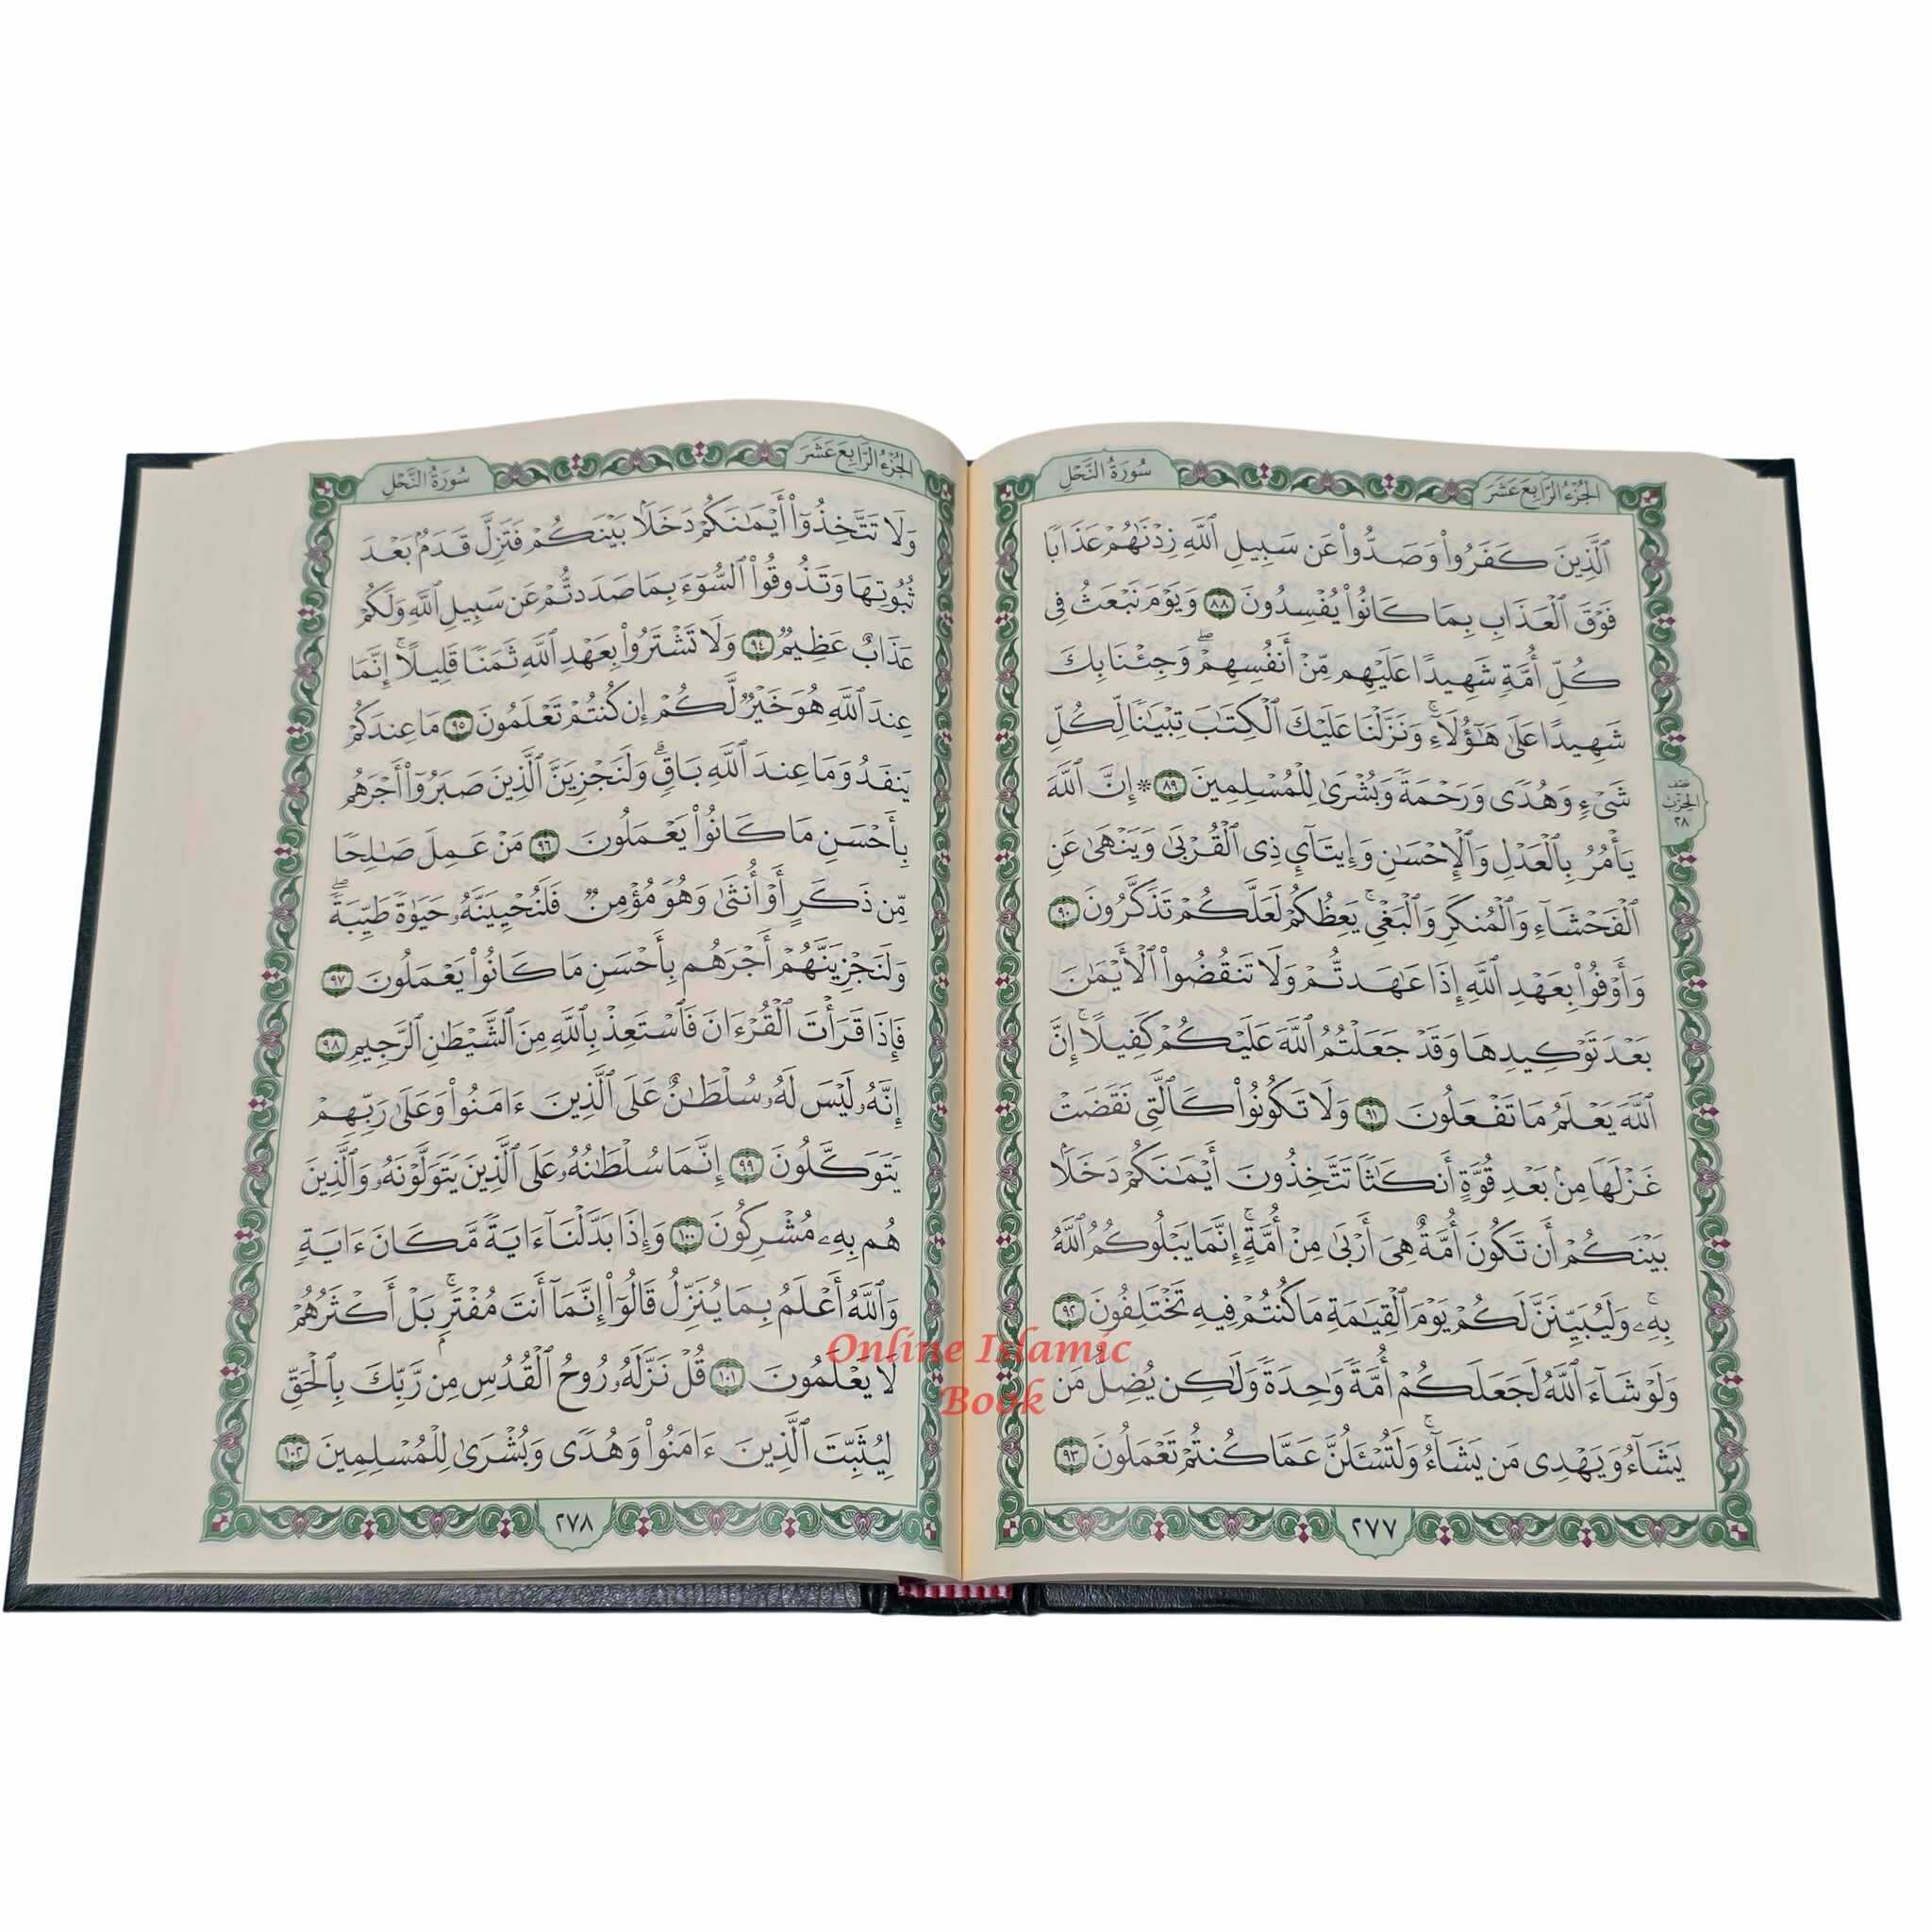 سُورَةُ النَّحۡلِ
الجُزۡءُ الرَّابِعَ عَشَرَ
ٱلَّذِينَ كَفَرُواْ وَصَدُّواْ عَن سَبِيلِ ٱللَّهِ زِدۡنَٰهُمۡ عَذَابٗا
فَوۡقَ ٱلۡعَذَابِ بِمَا كَانُواْ يُفۡسِدُونَ ٨٨ وَيَوۡمَ نَبۡعَثُ فِي
كُلِّ أُمَّةٖ شَهِيدًا عَلَيۡهِم مِّنۡ أَنفُسِهِمۡۖ وَجِئۡنَا بِكَ
شَهِيدًا عَلَىٰ هَٰٓؤُلَآءِۚ وَنَزَّلۡنَا عَلَيۡكَ ٱلۡكِتَٰبَ تِبۡيَٰنٗا لِّكُلِّ
شَيۡءٖ وَهُدٗى وَرَحۡمَةٗ وَبُشۡرَىٰ لِلۡمُسۡلِمِينَ ٨٩ ۞ إِنَّ ٱللَّهَ
يَأۡمُرُ بِٱلۡعَدۡلِ وَٱلۡإِحۡسَٰنِ وَإِيتَآيِٕ ذِي ٱلۡقُرۡبَىٰ وَيَنۡهَىٰ عَنِ
ٱلۡفَحۡشَآءِ وَٱلۡمُنكَرِ وَٱلۡبَغۡيِۚ يَعِظُكُمۡ لَعَلَّكُمۡ تَذَكَّرُونَ ٩٠
وَأَوۡفُواْ بِعَهۡدِ ٱللَّهِ إِذَا عَٰهَدتُّمۡ وَلَا تَنقُضُواْ ٱلۡأَيۡمَٰنَ
بَعۡدَ تَوۡكِيدِهَا وَقَدۡ جَعَلۡتُمُ ٱللَّهَ عَلَيۡكُمۡ كَفِيلًاۚ إِنَّ
ٱللَّهَ يَعۡلَمُ مَا تَفۡعَلُونَ ٩١ وَلَا تَكُونُواْ كَٱلَّتِي نَقَضَتۡ
غَزۡلَهَا مِنۢ بَعۡدِ قُوَّةٍ أَنكَٰثٗا تَتَّخِذُونَ أَيۡمَٰنَكُمۡ دَخَلَۢا
بَيۡنَكُمۡ أَن تَكُونَ أُمَّةٌ هِيَ أَرۡبَىٰ مِنۡ أُمَّةٍۚ إِنَّمَا يَبۡلُوكُمُ ٱللَّهُ
بِهِۦۚ وَلَيُبَيِّنَنَّ لَكُمۡ يَوۡمَ ٱلۡقِيَٰمَةِ مَا كُنتُمۡ فِيهِ تَخۡتَلِفُونَ ٩٢
وَلَوۡ شَآءَ ٱللَّهُ لَجَعَلَكُمۡ أُمَّةٗ وَٰحِدَةٗ وَلَٰكِن يُضِلُّ مَن
يَشَآءُ وَيَهۡدِي مَن يَشَآءُۚ وَلَتُسۡـَٔلُنَّ عَمَّا كُنتُمۡ تَعۡمَلُونَ ٩٣
نصف
الحزب
٢٨
٢٧٧
سُورَةُ النَّحۡلِ
الجُزۡءُ الرَّابِعَ عَشَرَ
وَلَا تَتَّخِذُوٓاْ أَيۡمَٰنَكُمۡ دَخَلَۢا بَيۡنَكُمۡ فَتَزِلَّ قَدَمُۢ بَعۡدَ
ثُبُوتِهَا وَتَذُوقُواْ ٱلسُّوٓءَ بِمَا صَدَدتُّمۡ عَن سَبِيلِ ٱللَّهِ وَلَكُمۡ
عَذَابٌ عَظِيمٞ ٩٤ وَلَا تَشۡتَرُواْ بِعَهۡدِ ٱللَّهِ ثَمَنٗا قَلِيلًاۚ إِنَّمَا
عِندَ ٱللَّهِ هُوَ خَيۡرٞ لَّكُمۡ إِن كُنتُمۡ تَعۡلَمُونَ ٩٥ مَا عِندَكُمۡ
يَنفَدُ وَمَا عِندَ ٱللَّهِ بَاقٖۗ وَلَنَجۡزِيَنَّ ٱلَّذِينَ صَبَرُوٓاْ أَجۡرَهُم
بِأَحۡسَنِ مَا كَانُواْ يَعۡمَلُونَ ٩٦ مَنۡ عَمِلَ صَٰلِحٗا
مِّن ذَكَرٍ أَوۡ أُنثَىٰ وَهُوَ مُؤۡمِنٞ فَلَنُحۡيِيَنَّهُۥ حَيَوٰةٗ طَيِّبَةٗۖ
وَلَنَجۡزِيَنَّهُمۡ أَجۡرَهُم بِأَحۡسَنِ مَا كَانُواْ يَعۡمَلُونَ ٩٧
فَإِذَا قَرَأۡتَ ٱلۡقُرۡءَانَ فَٱسۡتَعِذۡ بِٱللَّهِ مِنَ ٱلشَّيۡطَٰنِ ٱلرَّجِيمِ ٩٨
إِنَّهُۥ لَيۡسَ لَهُۥ سُلۡطَٰنٌ عَلَى ٱلَّذِينَ ءَامَنُواْ وَعَلَىٰ رَبِّهِمۡ
يَتَوَكَّلُونَ ٩٩ إِنَّمَا سُلۡطَٰنُهُۥ عَلَى ٱلَّذِينَ يَتَوَلَّوۡنَهُۥ وَٱلَّذِينَ
هُم بِهِۦ مُشۡرِكُونَ ١٠٠ وَإِذَا بَدَّلۡنَآ ءَايَةٗ مَّكَانَ ءَايَةٖ
وَٱللَّهُ أَعۡلَمُ بِمَا يُنَزِّلُ قَالُوٓاْ إِنَّمَآ أَنتَ مُفۡتَرِۭۚ بَلۡ أَكۡثَرُهُمۡ
لَا يَعۡلَمُونَ ١٠١ قُلۡ نَزَّلَهُۥ رُوحُ ٱلۡقُدُسِ مِن رَّبِّكَ بِٱلۡحَقِّ
لِيُثَبِّتَ ٱلَّذِينَ ءَامَنُواْ وَهُدٗى وَبُشۡرَىٰ لِلۡمُسۡلِمِينَ ١٠٢
٢٧٨
Online Islamic
Book